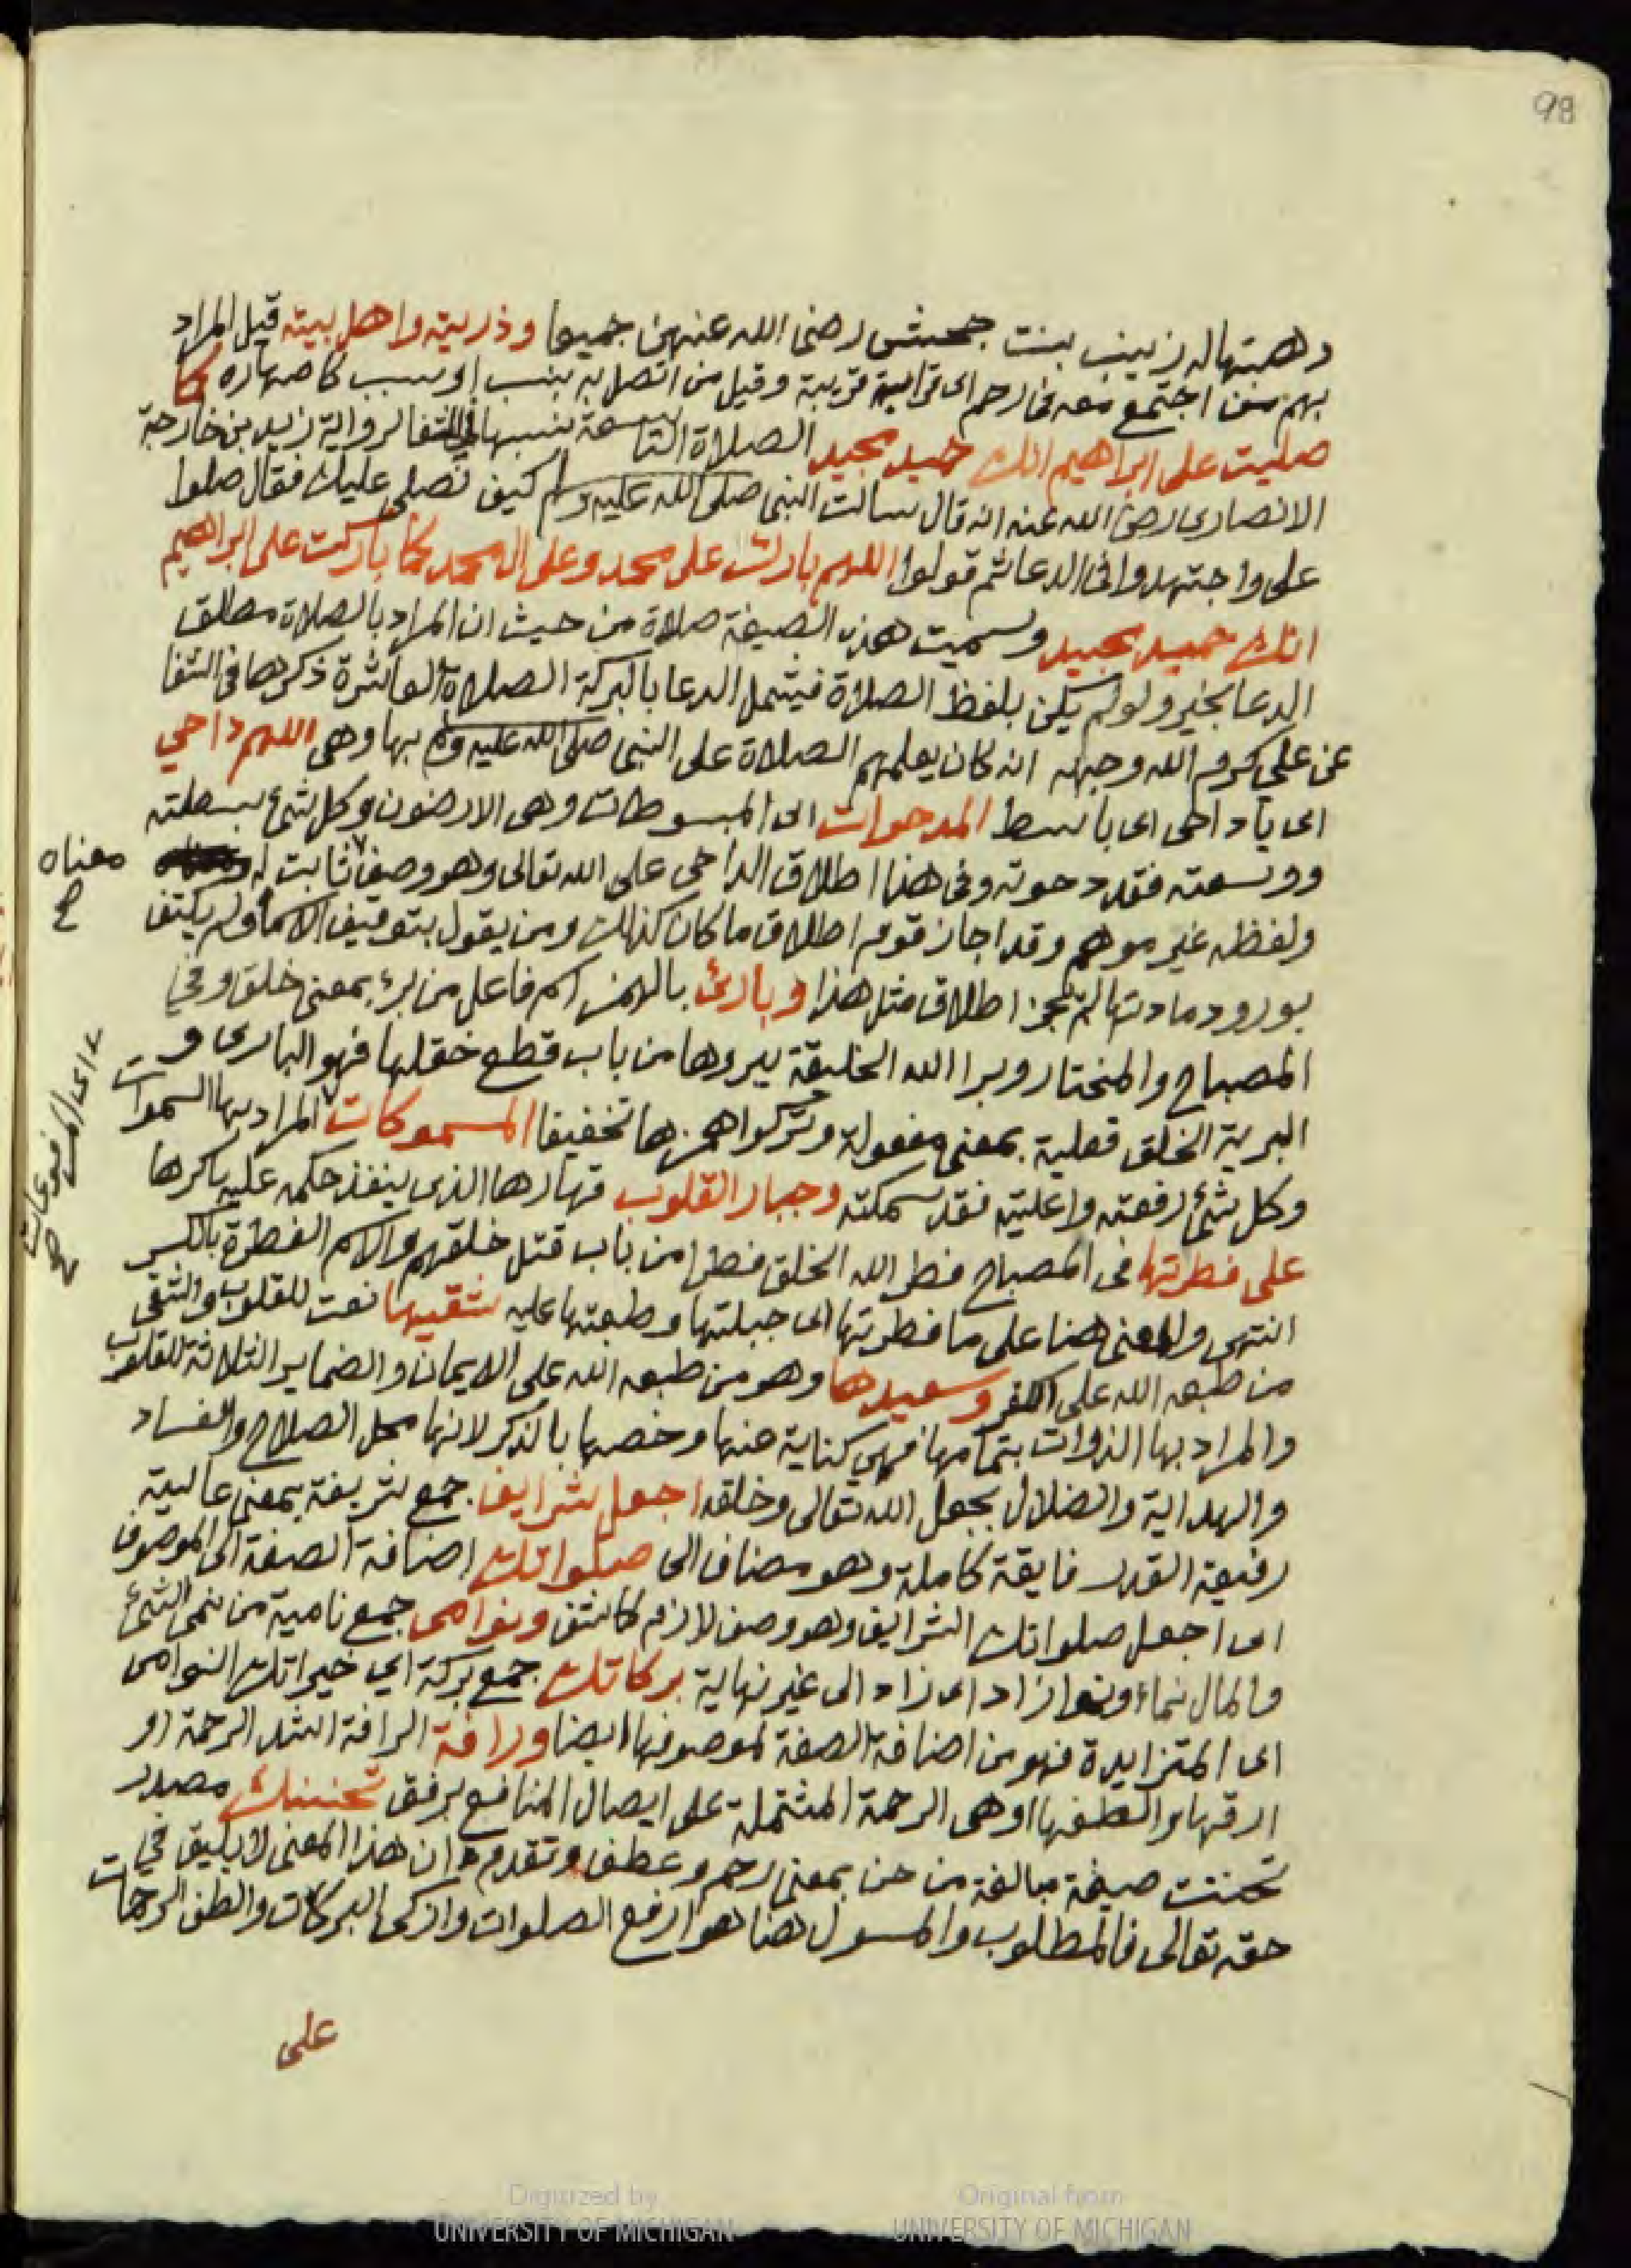 98
وهبتها لزينب بنت جحش رضى الله عنهن جميعا وذريته واهل بيته قيل المراد
بهم من اجتمع معه فى رحم اى قرابة قريبة وقيل من اتصل به بنسب او سبب كاصهاره كما
صليت على ابراهيم انك حميد مجيد الصلاة التاسعة نسبها فى الشفا لرواية زيد بن خارجة
الانصارى رضى الله عنه انه قال سالت النبى صلى الله عليه وسلم كيف نصلى عليك فقال صلوا
على واجتهدوا فى الدعا ثم قولوا اللهم بارك على محمد وعلى ال محمد كما باركت على ابراهيم
انك حميد مجيد وسميت هذه الصيغة صلاة من حيث ان المراد بالصلاة مطلق
الدعا بخير ولو لم يكن بلفظ الصلاة فيشمل الدعا بالبركة الصلاة العاشرة ذكرها فى الشفا
عن على كرم الله وجهه انه كان يعلمهم الصلاة على النبى صلى الله عليه وسلم بها وهى اللهم داحي
اى ياداحى اى باسط المدحوات اى المبسوطات وهى الارضون وكل شئ بسطته
ووسعته فقد دحوته وفى هذا اطلاق الداحى على الله تعالى وهو وصف ثابت له
معناه صح
ولفظه غير موهم وقد اجاز قوم اطلاق ما كان كذلك ومن يقول بتوقيف الاسما ولم يكتف
بورود مادتها لم يجز اطلاق مثل هذا وبارئ بالهمز اسم فاعل من برء بمعنى خلق وفي
المصباح والمختار وبرا الله الخليقة يبروها من باب قطع خقلها فهو البارى و
البرية الخلق فعلية بمعنى مفعولة وتركوا همزها تخفيفا المسموكات المراد بها السموات
اى المرفوعات صح
وكل شئ رفعته واعليته فقد سمكته وجبار القلوب قهارها الذى ينفذ حكمه عليه باكرها
على فطرتها فى المصباح فطر الله الخلق فطرا من باب قتل خلقهم والاسم الفطرة بالكسر
انتهى والمعنى هنا على ما فطرتها اى جبلتها وطبعتها عليه شقيها نعت للقلوب والشقى
من طبعه الله على الكفر وسعيدها وهو من طبعه الله على الايمان والضماير الثلاثة للقلوب
والمراد بها الذوات بتمامها فهي كناية عنها وخصها بالذكر لانها محل الصلاح والفساد
والهداية والضلال بجعل الله تعالى وخلقه اجعل شرايف جمع شريفة بمعنى عالية
رفيعة القدر فايقة كاملة وهو مضاف الى صلواتك اضافة الصفة الى الموصوف
اى اجعل صلواتك الشرايف وهو وصف لازم كاشف ونوامى جمع نامية من نمى الشئ
والمال نماء ونموا زاد اى زاد الى غير نهاية بركاتك جمع بركة اي خيراتك النوامى
اى المتزايدة فهو من اضافة الصفة لموصوفها ايضا ورافة الرافة اشد الرحمة او
ارقها والطفها او هى الرحمة المشتملة على ايصال المنافع برفق تحننك مصدر
تحننت صيغة مبالغة من حن بمعنى رحم وعطف وتقدم ان هذا المعنى لا يليق في
حقه تعالى فالمطلوب والمسول هنا هو ارفع الصلوات وازكى البركات والطف الرحمات
على
Digitized by UNIVERSITY OF MICHIGAN
Original from UNIVERSITY OF MICHIGAN